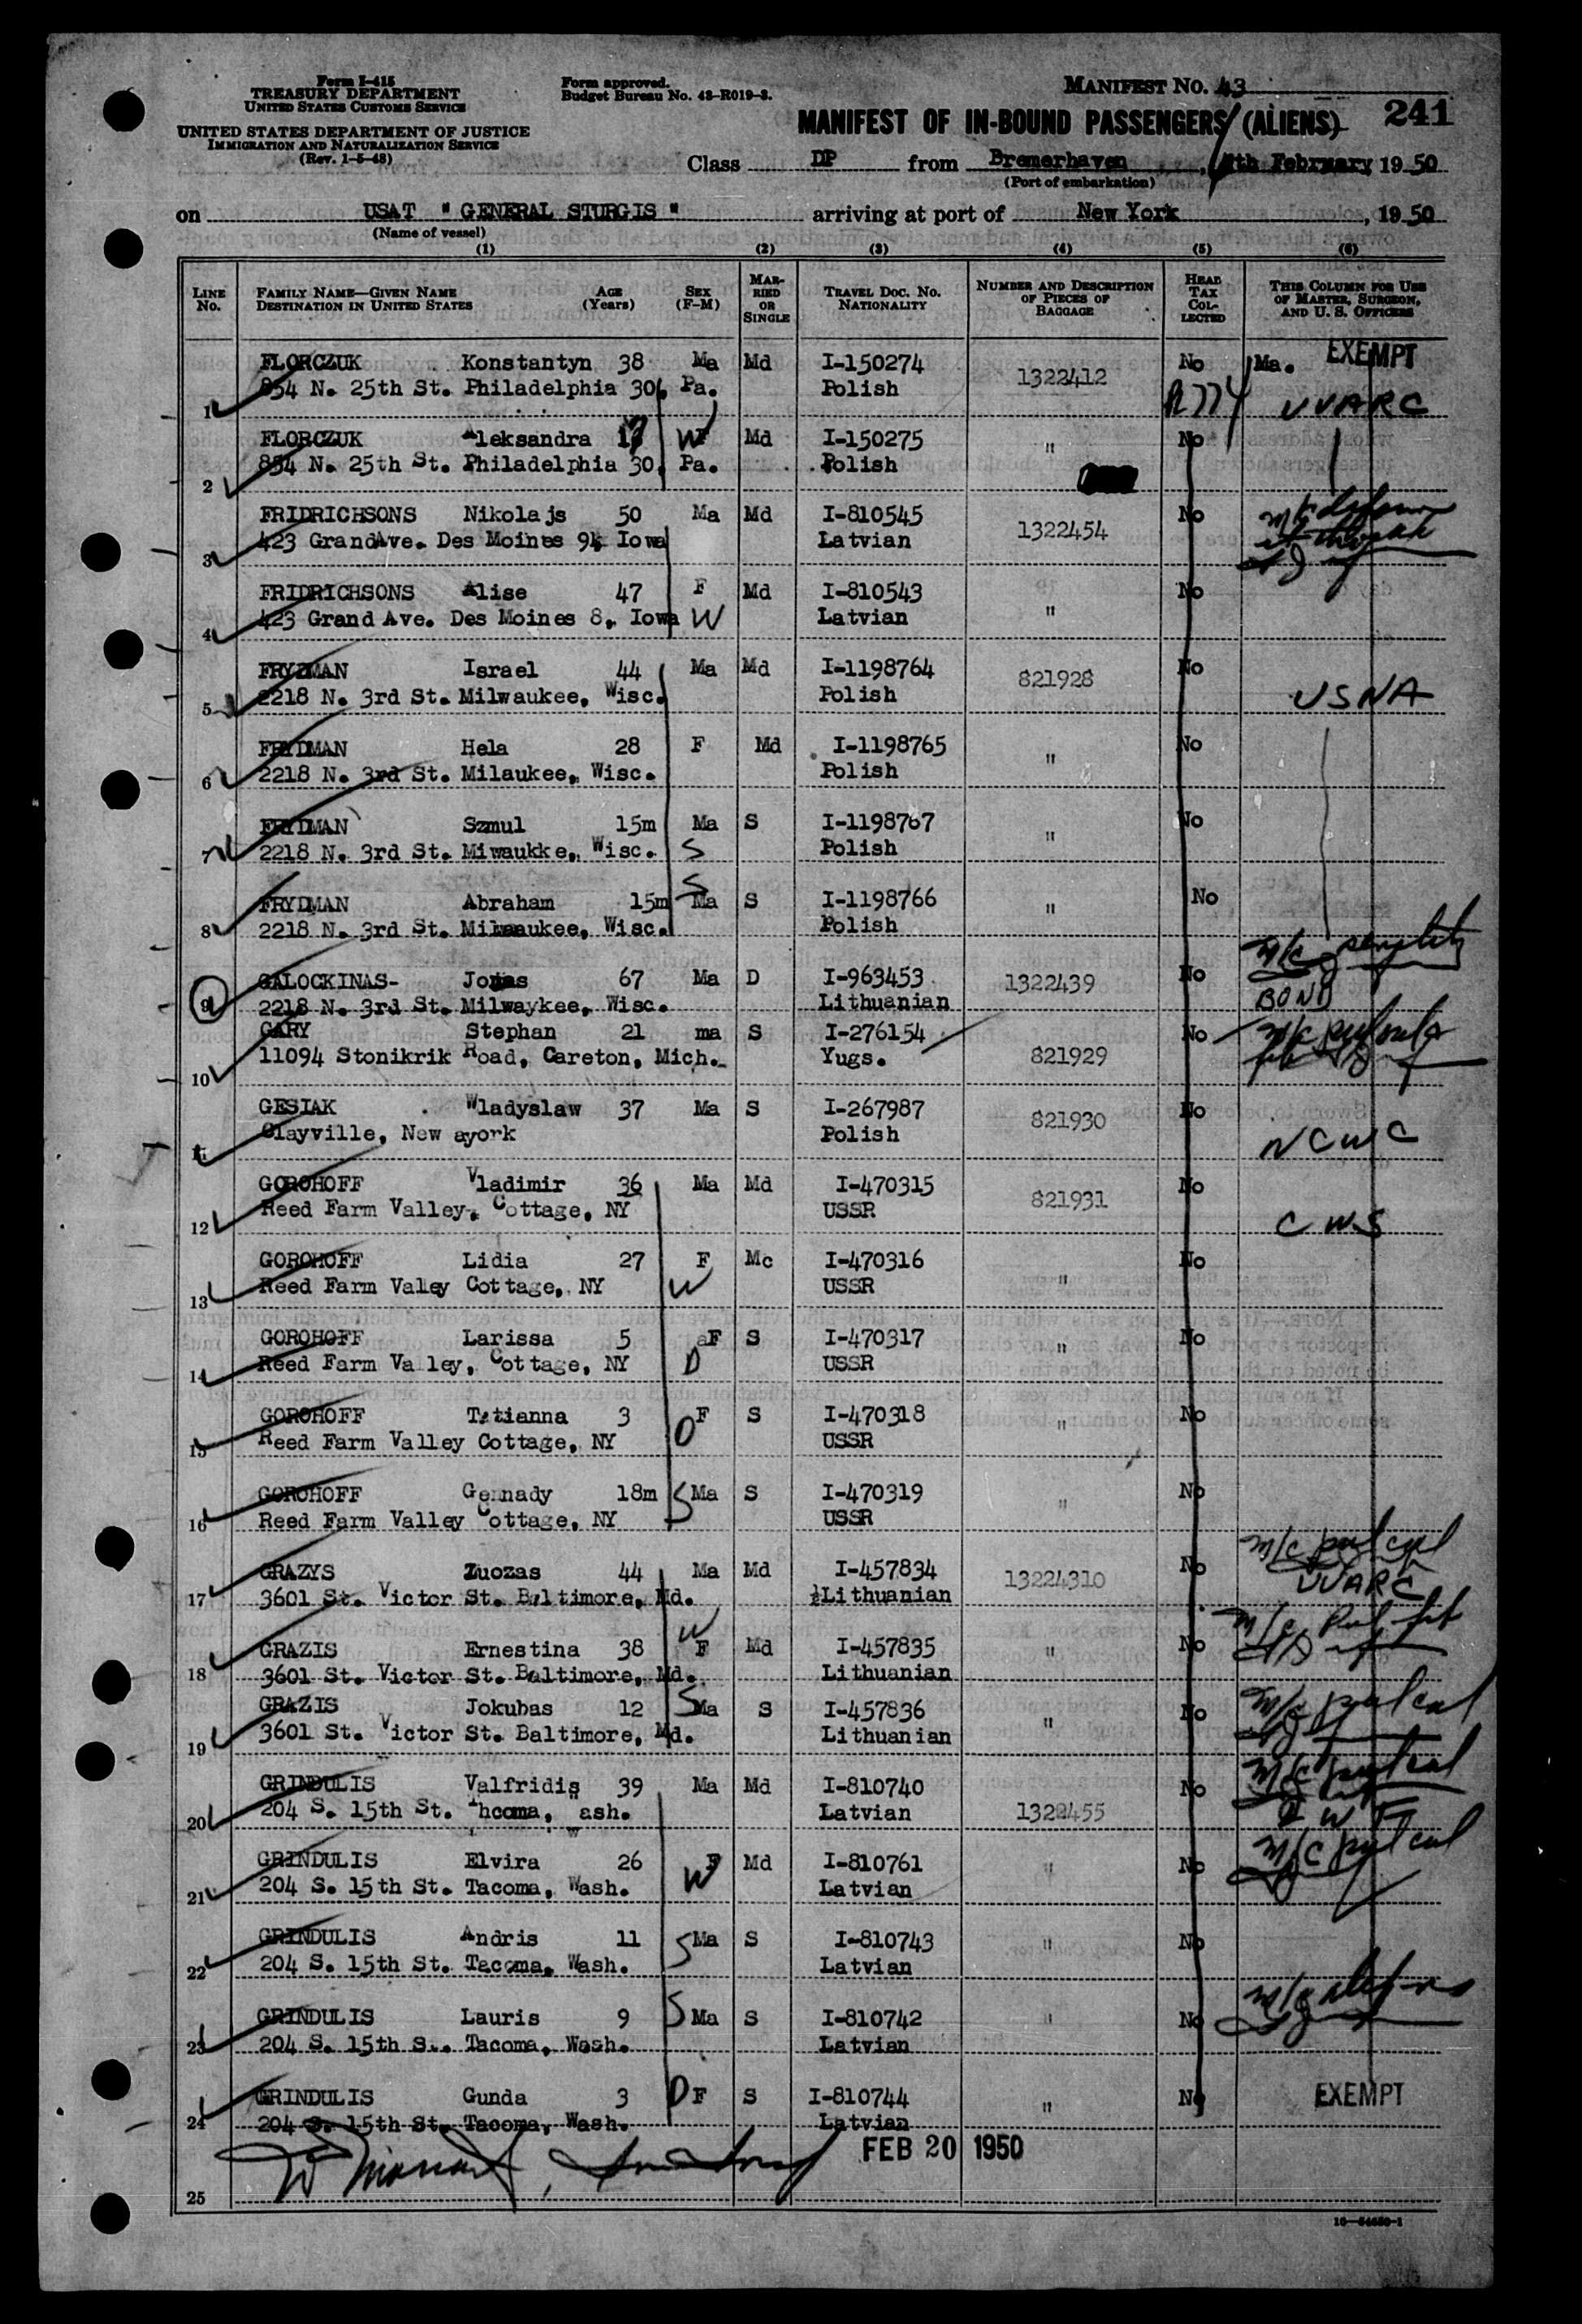 Form I-415
TREASURY DEPARTMENT
UNITED STATES CUSTOMS SERVICE
UNITED STATES DEPARTMENT OF JUSTICE
IMMIGRATION AND NATURALIZATION SERVICE
(Rev. 1-5-48)
Form approved.
Budget Bureau No. 43-R019-3.
MANIFEST NO. 43
241
MANIFEST OF IN-BOUND PASSENGERS (ALIENS)
Class DP from Bremerhaven, th February 1950
(Port of embarkation)
on USAT " GENERAL STURGIS " arriving at port of New York, 1950
(Name of vessel)
(1) (2) (3) (4) (5) (6)
LINE No. FAMILY NAME—GIVEN NAME DESTINATION IN UNITED STATES AGE (Years) SEX (F-M) MARRIED OR SINGLE TRAVEL DOC. NO. NATIONALITY NUMBER AND DESCRIPTION OF PIECES OF BAGGAGE HEAD TAX COLLECTED THIS COLUMN FOR USE OF MASTER, SURGEON, AND U. S. OFFICERS
FLORCZUK Konstantyn 38 Ma Md I-150274 1322412 No Ma. EXEMPT
1 854 N. 25th St. Philadelphia 30, Pa. Polish A774 UUARC
FLORCZUK Aleksandra 17 W Md I-150275 " No
2 854 N. 25th St. Philadelphia 30, Pa. Polish
FRIDRICHSONS Nikolajs 50 Ma Md I-810545 1322454 No
3 423 GrandAve. Des Moines 9, Iowa Latvian
FRIDRICHSONS Alise 47 F Md I-810543 " No
4 423 Grand Ave. Des Moines 8, Iowa W Latvian
FRYDMAN Israel 44 Ma Md I-1198764 821928 No
5 2218 N. 3rd St. Milwaukee, Wisc. Polish USNA
FRYDMAN Hela 28 F Md I-1198765 " No
6 2218 N. 3rd St. Milaukee, Wisc. Polish
FRYDMAN Szmul 15m Ma S I-1198767 " No
7 2218 N. 3rd St. Miwaukke, Wisc. S Polish
FRYDMAN Abraham 15m S Ma S I-1198766 " No
8 2218 N. 3rd St. Milwaukee, Wisc. Polish
GALOCKINAS- Jonas 67 Ma D I-963453 1322439 No
9 2218 N. 3rd St. Milwaykee, Wisc. Lithuanian BOND
GARY Stephan 21 ma S I-276154 No
10 11094 Stonikrik Road, Careton, Mich. Yugs. 821929
GESIAK Wladyslaw 37 Ma S I-267987 821930 No
11 Clayville, New ayork Polish NCWC
GOROHOFF Vladimir 36 Ma Md I-470315 821931 No
12 Reed Farm Valley, Cottage, NY USSR CWS
GOROHOFF Lidia 27 F Mc I-470316 " No
13 Reed Farm Valey Cottage, NY W USSR
GOROHOFF Larissa 5 F S I-470317 " No
14 Reed Farm Valley, Cottage, NY D USSR
GOROHOFF Tatianna 3 F S I-470318 " No
15 Reed Farm Valley Cottage, NY D USSR
GOROHOFF Gennady 18m S Ma S I-470319 " No
16 Reed Farm Valley Cottage, NY USSR
GRAZYS Zuozas 44 Ma Md I-457834 13224310 No
17 3601 St. Victor St. Baltimore, Md. Lithuanian UUARC
GRAZIS Ernestina 38 W F Md I-457835 " No
18 3601 St. Victor St. Baltimore, Md. Lithuanian
GRAZIS Jokubas 12 S Ma S I-457836 " No
19 3601 St. Victor St. Baltimore, Md. Lithuanian
GRINDULIS Valfridis 39 Ma Md I-810740 No
20 204 S. 15th St. Thcoma, Wash. Latvian 1322455
GRINDULIS Elvira 26 F Md I-810761 " No
21 204 S. 15th St. Tacoma, Wash. W Latvian
GRINDULIS Andris 11 S Ma S I-810743 " No
22 204 S. 15th St. Tacoma, Wash. Latvian
GRINDULIS Lauris 9 S Ma S I-810742 " No
23 204 S. 15th S.. Tacoma, Wash. Latvian
GRINDULIS Gunda 3 D F S I-810744 " No EXEMPT
24 204 S. 15th St. Tacoma, Wash. Latvian
FEB 20 1950
25